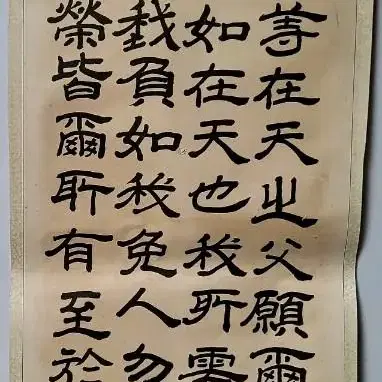 等在天之父願爾
如在天也我所需
我負如我免人勿
榮皆爾所有至於